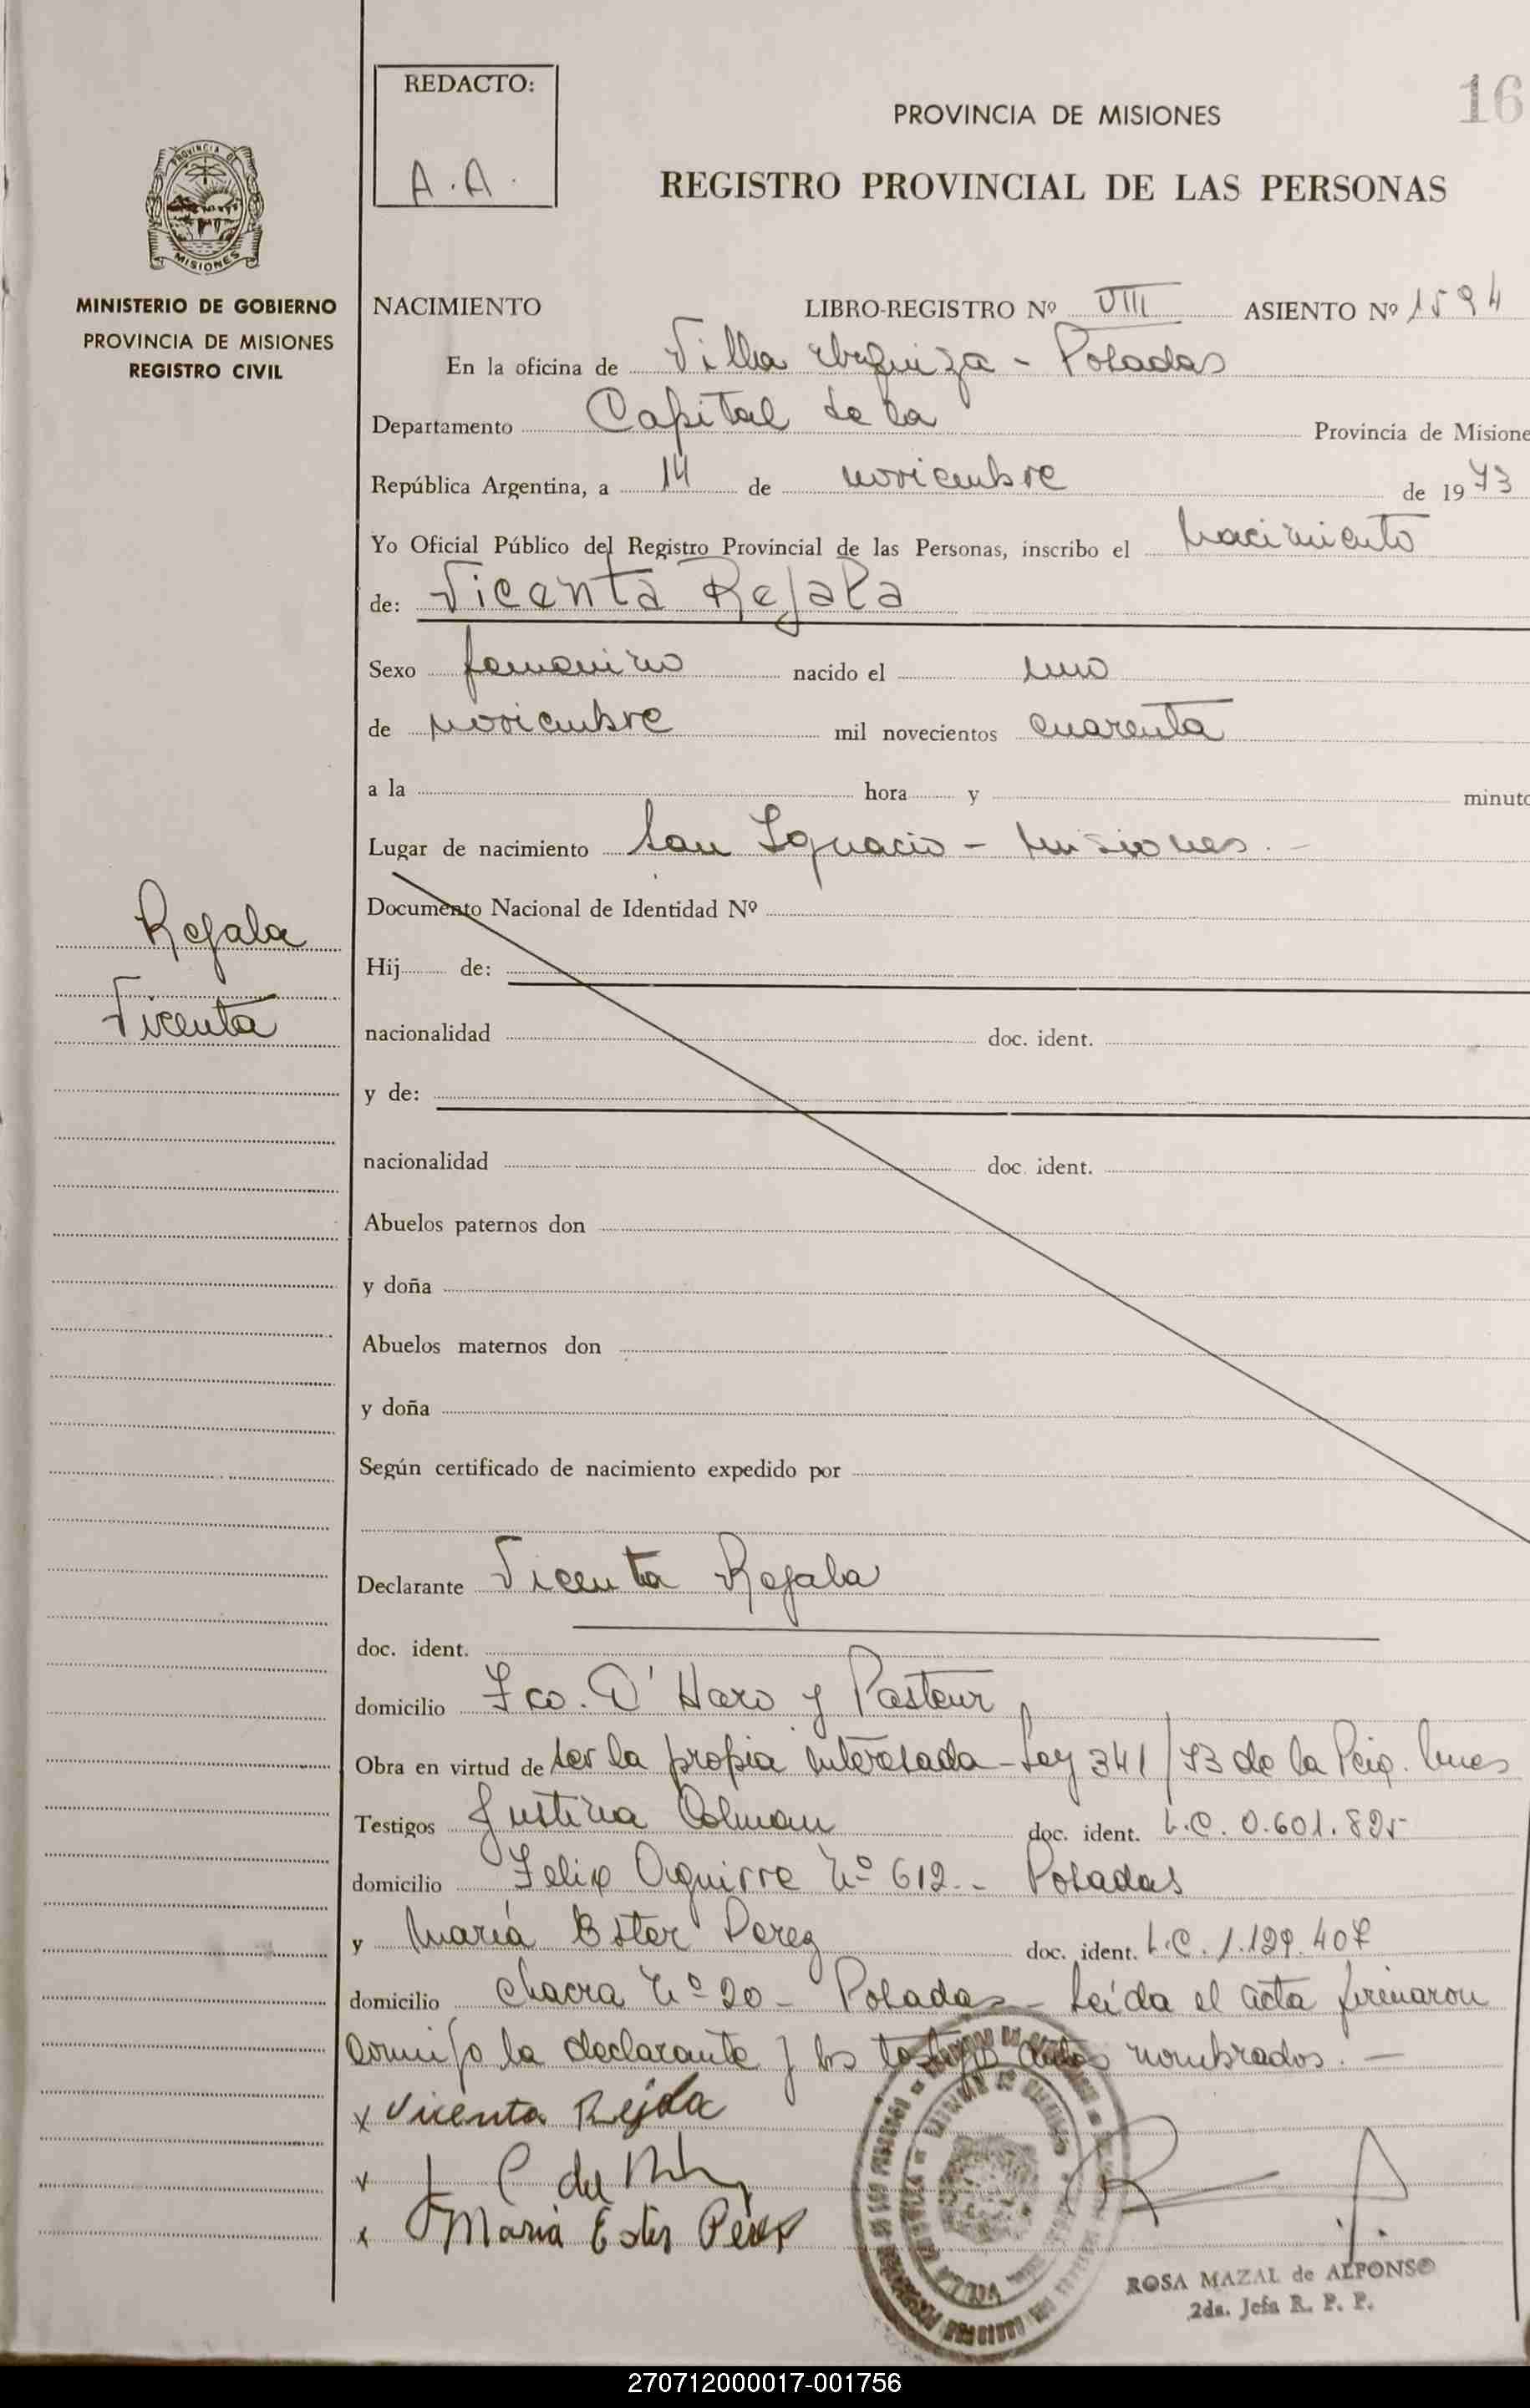 REDACTO:
A.A.
16
PROVINCIA DE MISIONES
REGISTRO PROVINCIAL DE LAS PERSONAS
PROVINCIA DE
MISIONES
MINISTERIO DE GOBIERNO
PROVINCIA DE MISIONES
REGISTRO CIVIL
NACIMIENTO LIBRO-REGISTRO Nº VIII ASIENTO Nº 1594
En la oficina de Villa Urquiza - Posadas
Departamento Capital de la Provincia de Misione
República Argentina, a 14 de noviembre de 1973
Yo Oficial Público del Registro Provincial de las Personas, inscribo el Nacimiento
de: Vicenta Rejala
Sexo femenino nacido el uno
de noviembre mil novecientos cuarenta
a la hora y minuto
Lugar de nacimiento San Ignacio - Misiones. -
Documento Nacional de Identidad Nº
Rejala
Vicenta
Hij de:
nacionalidad doc. ident.
y de:
nacionalidad doc. ident.
Abuelos paternos don
y doña
Abuelos maternos don
y doña
Según certificado de nacimiento expedido por
Declarante Vicenta Rejala
doc. ident.
domicilio Fco. D' Haro y Pasteur
Obra en virtud de ser la propia interesada - Ley 341/73 de la Pcia. Mnes
Testigos Justina Colman doc. ident. L.C. 0.601.825
domicilio Felix Aguirre Nº 612 - Posadas
y María Ester Perez doc. ident. L.C. 1.129.407
domicilio Chacra Nº 20 - Posadas - Leída el acta firmaron
conmigo la declarante y los testigos antes nombrados. -
x Vicenta Rejala
x
x Maria Ester Pérez
ROSA MAZAL de ALFONSO
2da. Jefa R. P. P.
270712000017-001756